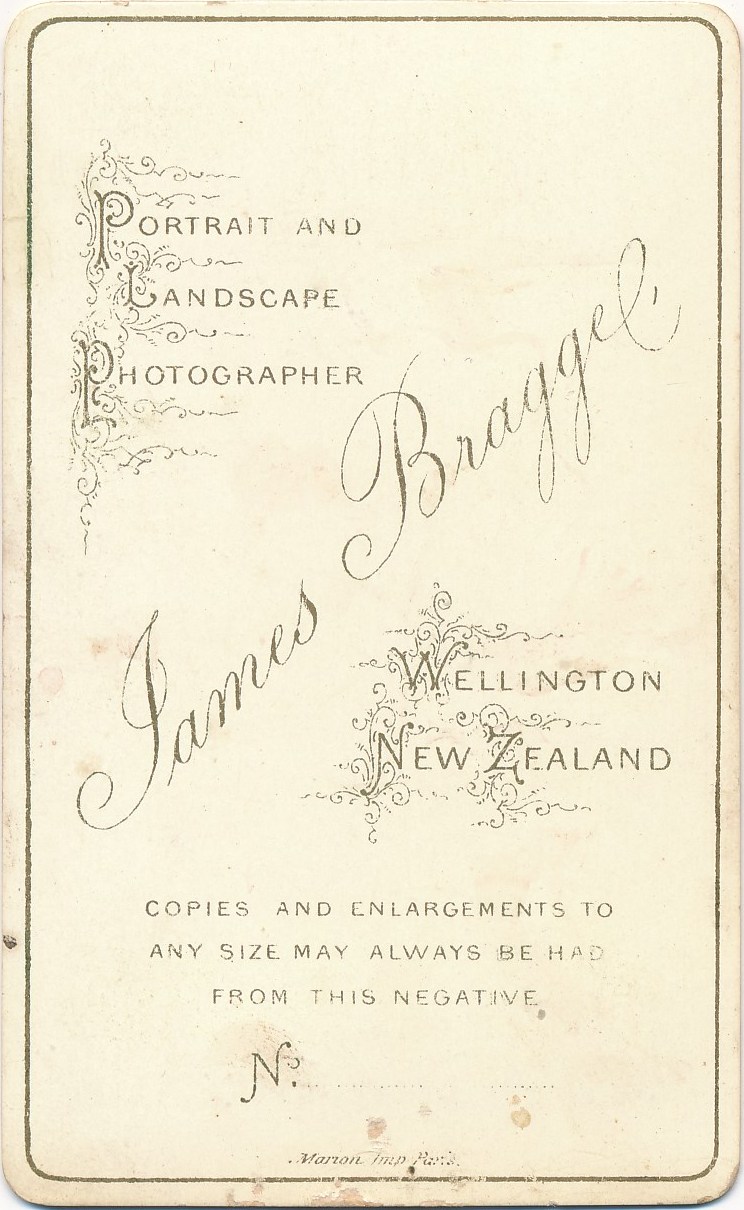 PORTRAIT AND
LANDSCAPE
PHOTOGRAPHER
James Bragge
WELLINGTON
NEW ZEALAND
COPIES AND ENLARGEMENTS TO
ANY SIZE MAY ALWAYS BE HAD
FROM THIS NEGATIVE
Nº
Marion Imp Paris.